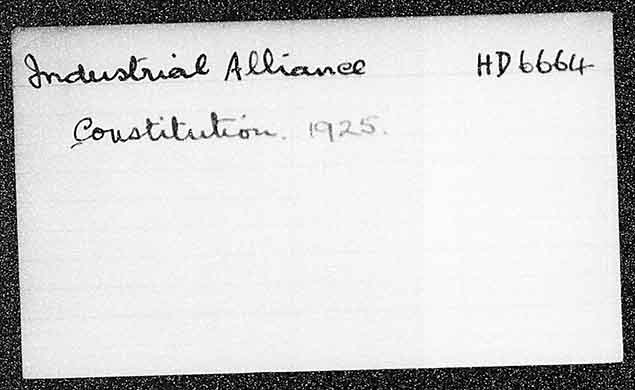 Industrial Alliance HD6664
Constitution. 1925.